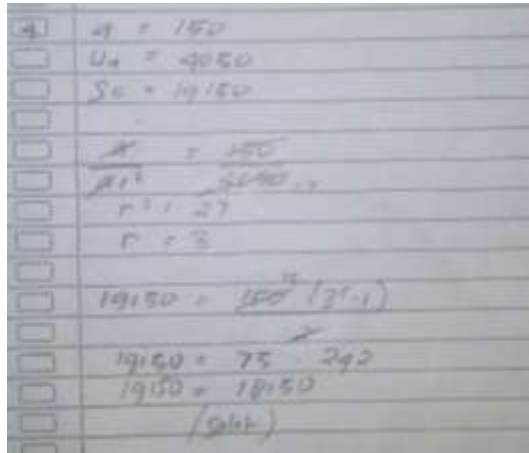 4 a = 150
U4 = 4050
S5 = 19150
a = 150
ar³ 4050
r³ = 27
r = 3
19150 = 150 (3⁵-1)
2
19150 = 75 . 242
19150 = 18150
(salah)